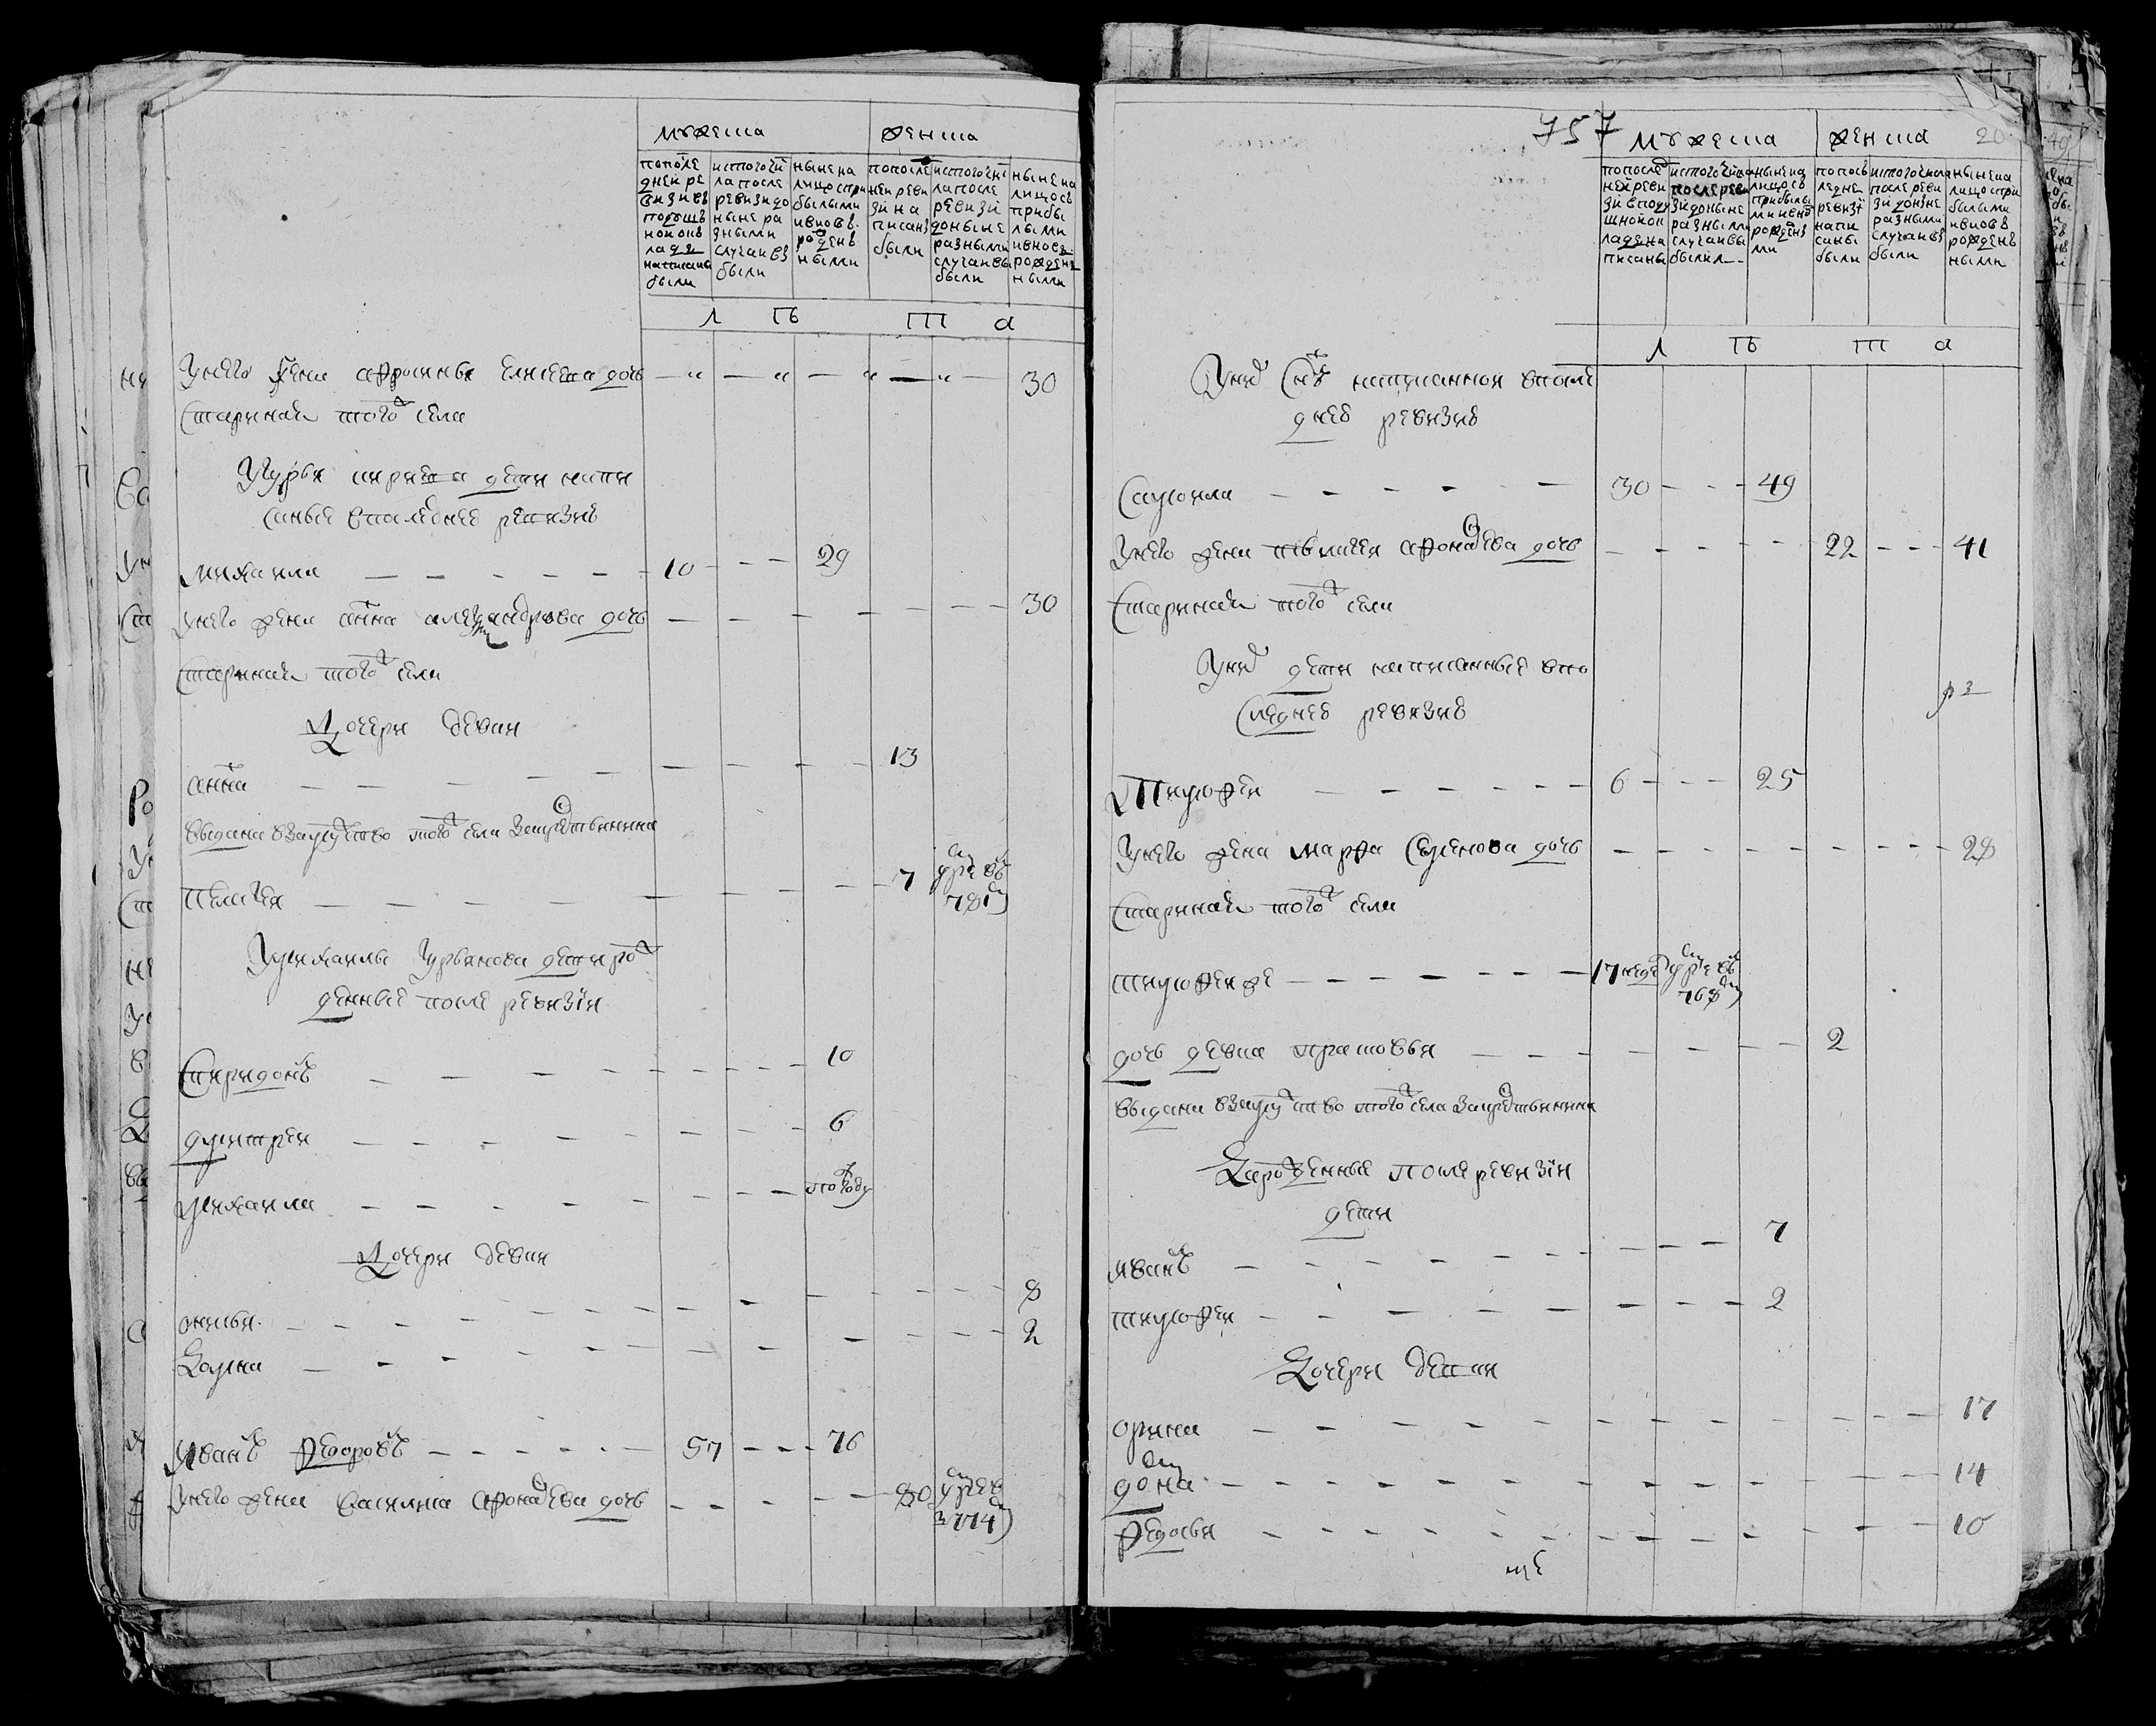 мужеска
женска
попосле
дней ре
визи въ
подуш
ной окъ
ладъ
написаны
были
истогочи
ла после
ревизи до
ныне ра
зными
случаи въ
были
ныне на
лицо спри
былыми
ивновъ
рожден
ными
попосле
ней реви
зи на
писаны
были
истогочи
ла после
ревизи
доныне
разными
случаи въ
были
ныне на
лицо съ
прибы
лыми
ивнов
рожден
ными
л ѣ т а
унего жена афросинья елисеева дочь — — — — 30
старинная того села
угурья спиридона дети напи
санные впоследней ревизии
михаила — — — — — 10 — — 29
унего жена анна александрова дочь — — — — 30
старинная того села
дочери девки
анна — — — — — 13
выдана взамужство того села за крестьянина
пелагея — — — — — 7 умре въ 781м
умихаилы гурьянова дети рож
денные после ревизии
спиридонъ — — — — — 10
дмитрей — — — — — 6
михаила — — — — — погоду
дочери девки
— — — — — 8
домна — — — — — 2
иванъ федоровъ — — — — — 57 — — 76
унего жена василиса афонасьева дочь — — — — — 80 умре в 774м
757
20
мужеска
женска
попослед
ней реви
зи вподу
шной ок
лад на
писаны
истогочисла
после реви
зи доныне
разными
случаи въ
были
ныне на
лицо съ
прибылы
ми ивно
рожден
ми
попосъ
ледне
ревизи
напи
саны
были
истогочисла
после реви
зи доныне
разными
случаи въ
были
ныне на
лицо спри
былыми
ивновъ
рожден
ными
л ѣ т а
унихъ сынъ написанной впосле
дней ревизии
самоила — — — — — 30 — — 49
унего жена пелагея афонасьева дочь — — — — — 22 — — 41
старинная того села
унихъ дети написанные впо
следней ревизии
тимофей — — — — — 6 — — 25
унего жена марфа семенова дочь — — — — — 28
старинная того села
тимофей же — — — — — 17 недель умре въ 768м
дочь девка прасковья — — — — — 2
выдана взамужство того села за крестьянина
рожденные после ревизии
дети
иванъ — — — — — 7
тимофей — — — — — 2
дочери девки
орина — — — — — 17
домна — — — — — 14
федосья — — — — — 10